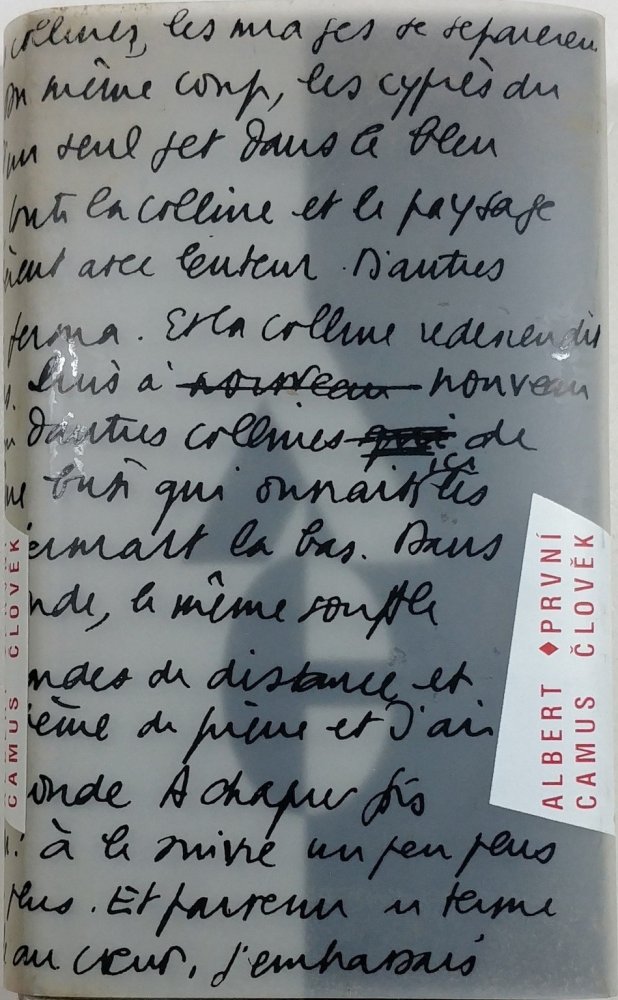 collines, les nuages se séparèrent
même coup, les cyprès du
seul jet dans le bleu
la colline et le paysage
avec lenteur. D'autres
ferma. Et la colline redescendit
à nouveau nouveau
d'autres collines qui de
qui
là bas. Dans
le même souffle
de distance et
de pierre et d'air
A chaque fois
à le suivre un peu plus
plus. Et parvenu au terme
au cœur, j'embrassais
CAMUS ČLOVĚK
ALBERT ♦ PRVNÍ
CAMUS ČLOVĚK